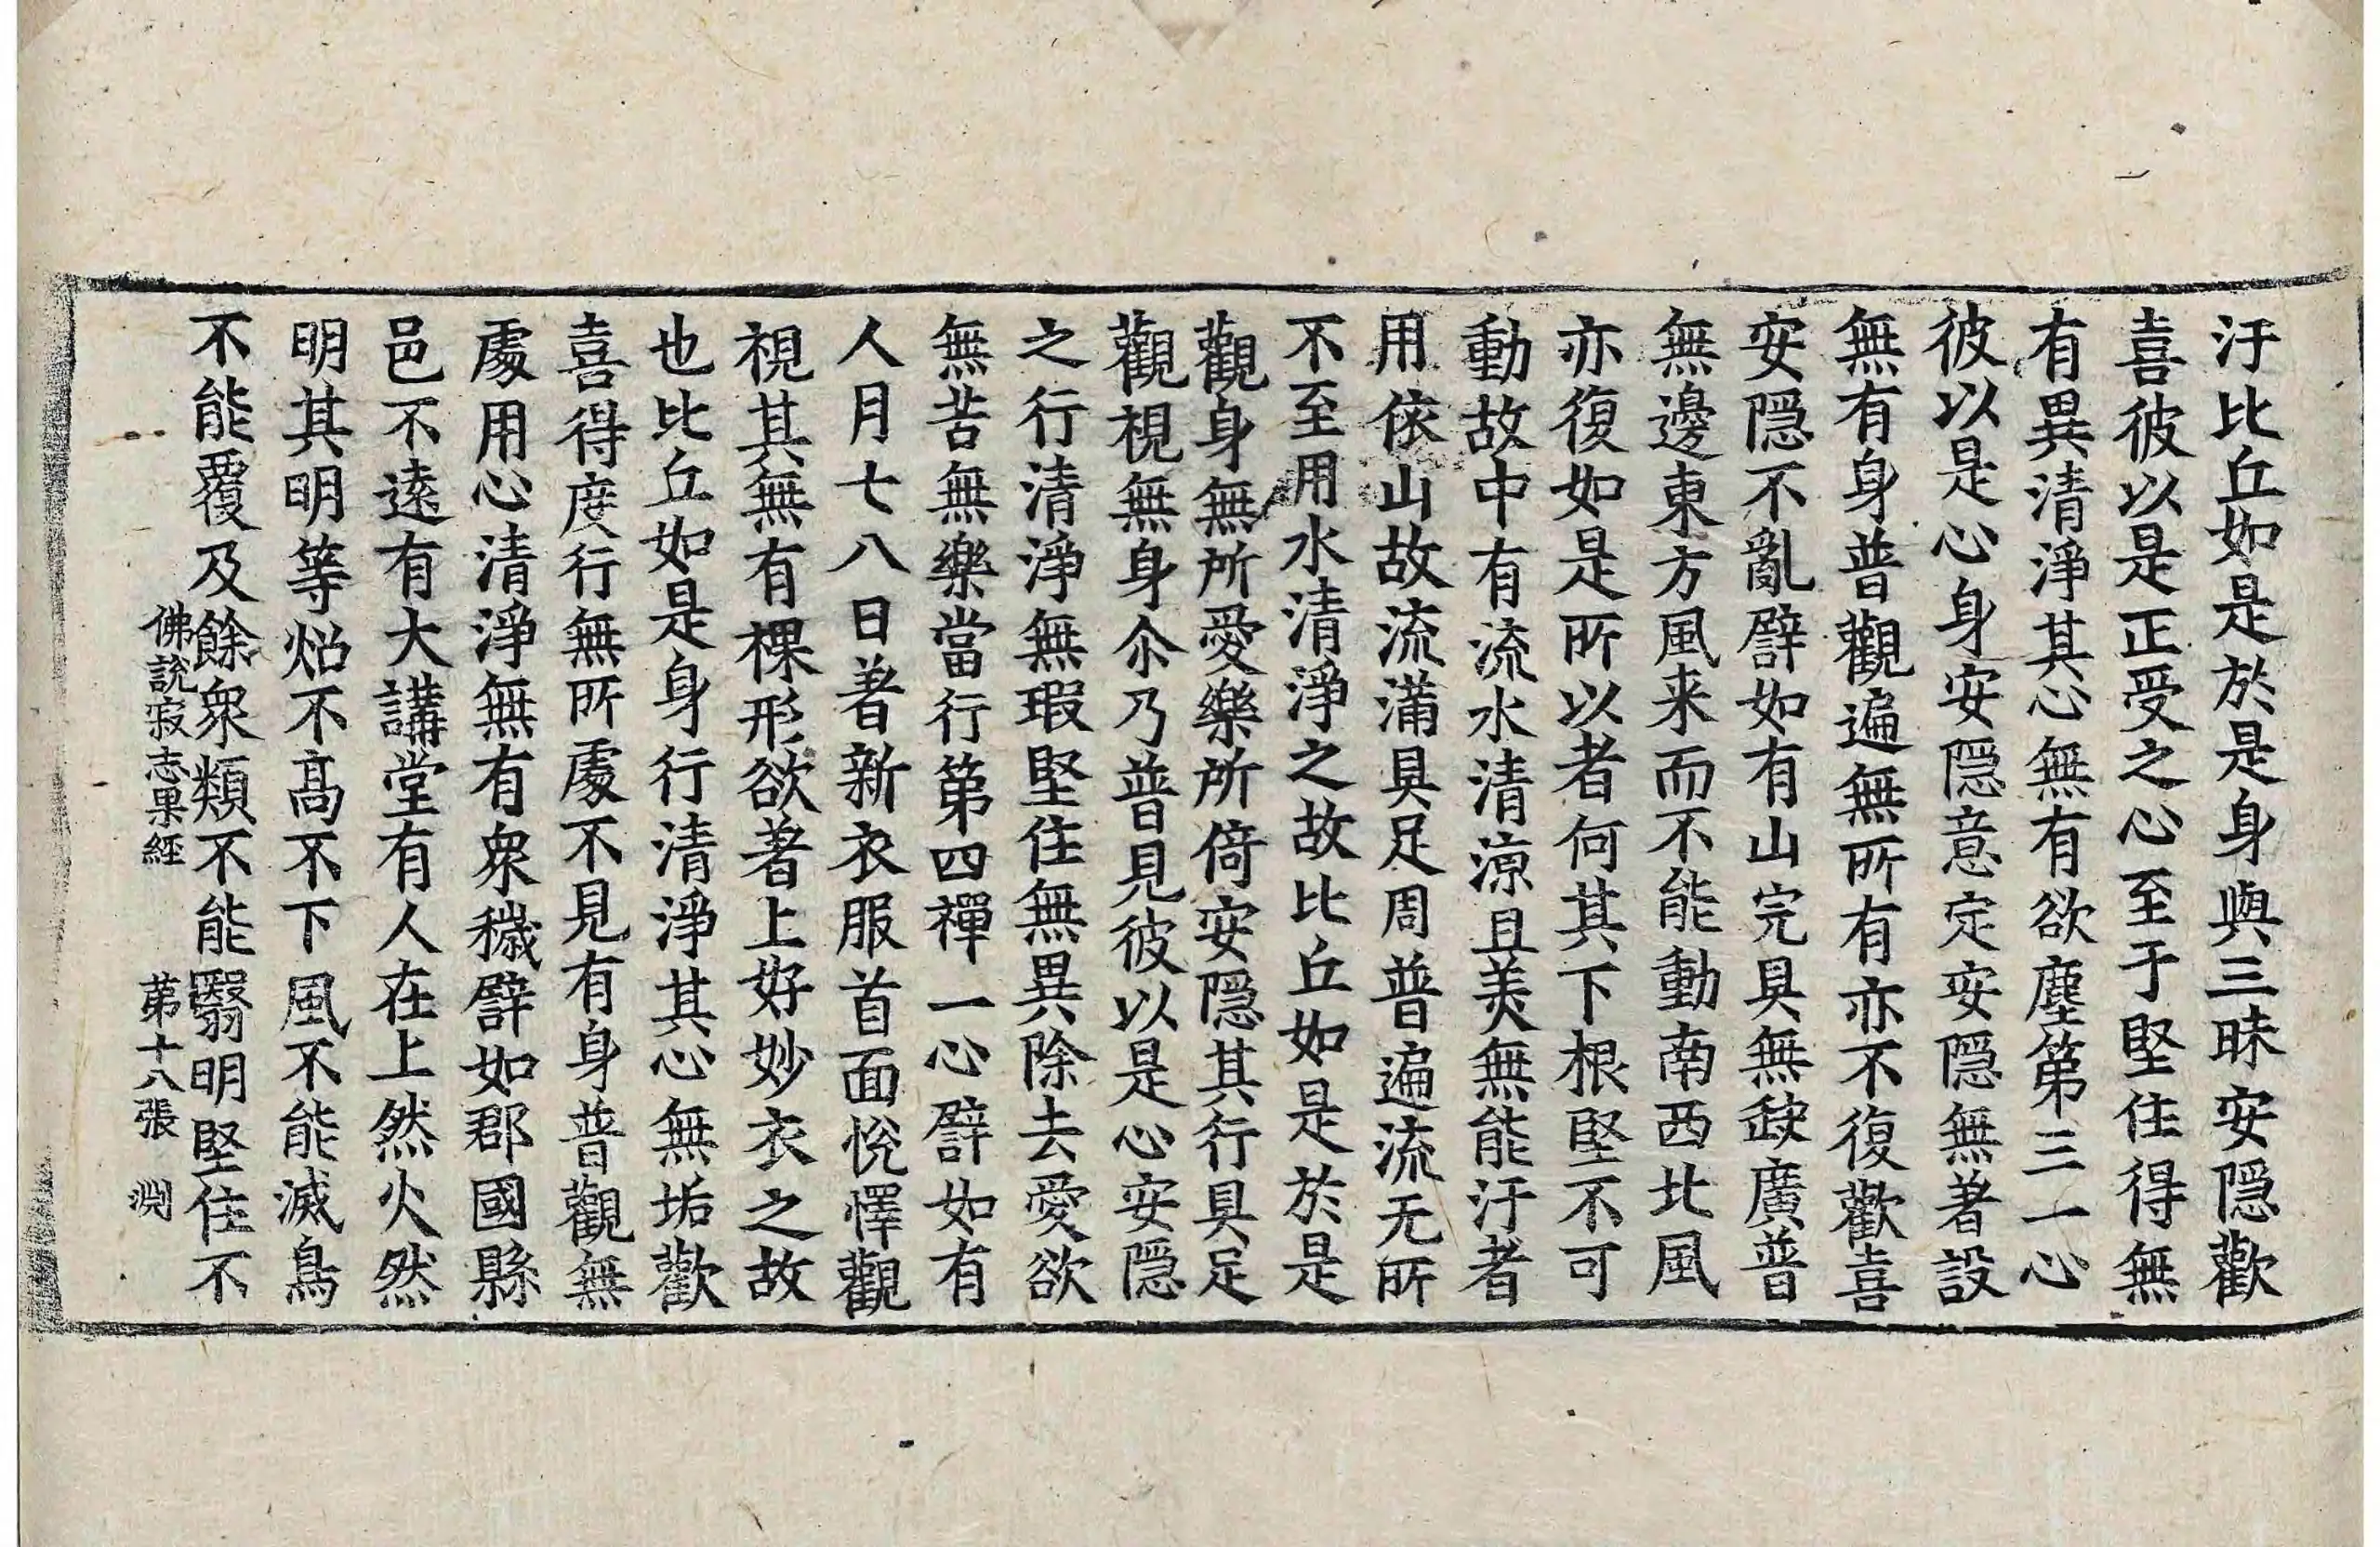 汙比丘如是於是身與三昧安隱歡
喜彼以是正受之心至于堅住得無
有異清淨其心無有欲塵第三一心
彼以是心身安隱意定安隱無著設
無有身普觀遍無所有亦不復歡喜
安隱不亂譬如有山完具無䟽廣普
無邊東方風来而不能動南西北風
亦復如是所以者何其下根堅不可
動故中有流水清涼且美無能汙者
用依山故流滿具足周普遍流无所
不至用水清淨之故比丘如是於是
觀身無所愛樂所倚安隱其行具足
觀視無身尒乃普見彼以是心安隱
之行清淨無瑕堅住無異除去愛欲
無苦無樂當行第四禪一心譬如有
人月七八日著新衣服首面悅懌觀
視其無有裸形欲著上好妙衣之故
也比丘如是身行清淨其心無垢歡
喜得度行無所處不見有身普觀無
處用心清淨無有衆穢譬如郡國縣
邑不遠有大講堂有人在上然火然
明其明等炤不高不下風不能滅鳥
不能覆及餘衆類不能翳明堅住不
佛說寂志果經 第十八張 渕